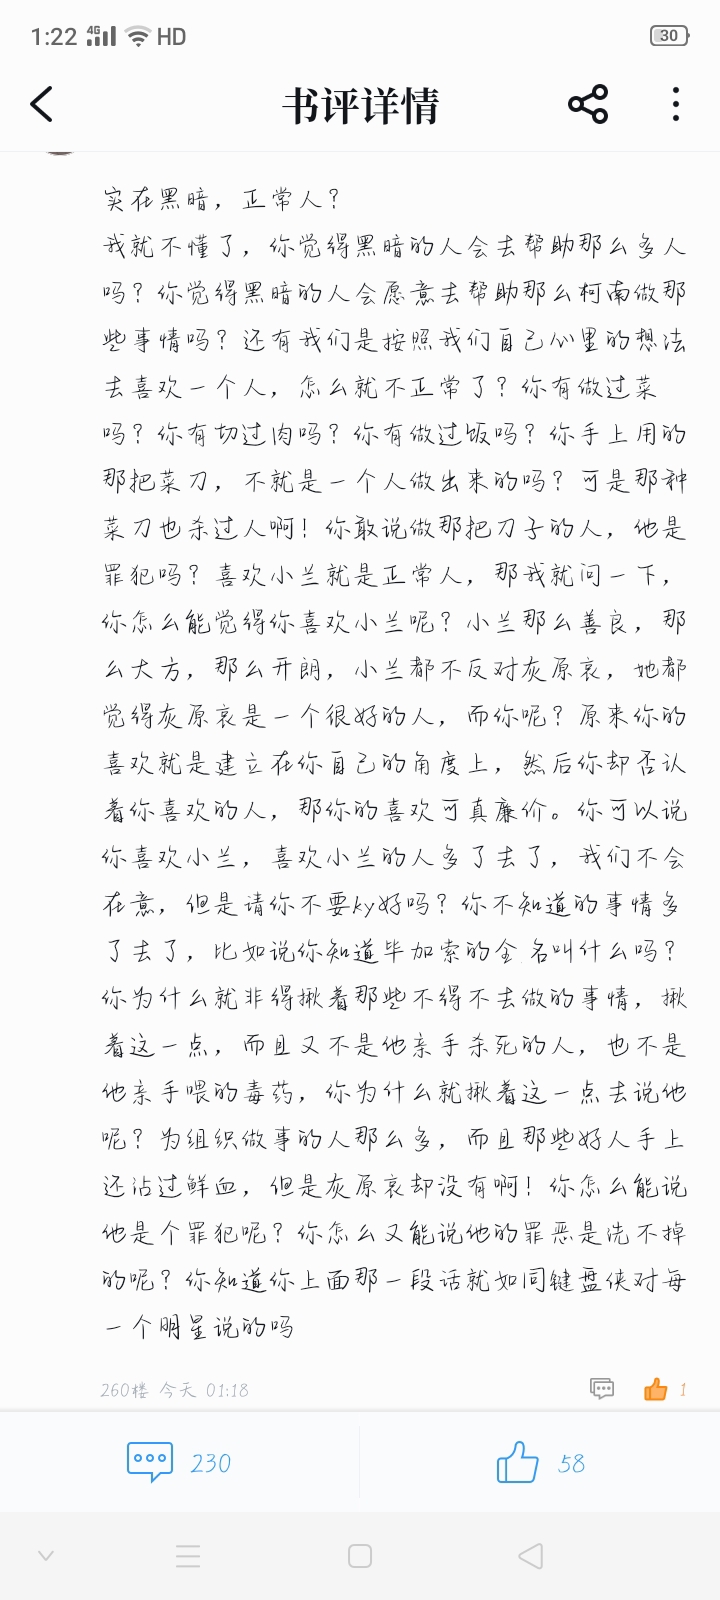 1:22 4G HD 30
书评详情
实在黑暗，正常人？
我就不懂了，你觉得黑暗的人会去帮助那么多人
吗？你觉得黑暗的人会愿意去帮助那么柯南做那
些事情吗？还有我们是按照我们自己心里的想法
去喜欢一个人，怎么就不正常了？你有做过菜
吗？你有切过肉吗？你有做过饭吗？你手上用的
那把菜刀，不就是一个人做出来的吗？可是那种
菜刀也杀过人啊！你敢说做那把刀子的人，他是
罪犯吗？喜欢小兰就是正常人，那我就问一下，
你怎么能觉得你喜欢小兰呢？小兰那么善良，那
么大方，那么开朗，小兰都不反对灰原哀，她都
觉得灰原哀是一个很好的人，而你呢？原来你的
喜欢就是建立在你自己的角度上，然后你却否认
着你喜欢的人，那你的喜欢可真廉价。你可以说
你喜欢小兰，喜欢小兰的人多了去了，我们不会
在意，但是请你不要ky好吗？你不知道的事情多
了去了，比如说你知道毕加索的全名叫什么吗？
你为什么就非得揪着那些不得不去做的事情，揪
着这一点，而且又不是他亲手杀死的人，也不是
他亲手喂的毒药，你为什么就揪着这一点去说他
呢？为组织做事的人那么多，而且那些好人手上
还沾过鲜血，但是灰原哀却没有啊！你怎么能说
他是个罪犯呢？你怎么又能说他的罪恶是洗不掉
的呢？你知道你上面那一段话就如同键盘侠对每
一个明星说的吗
260楼 今天 01:18 1
230 58